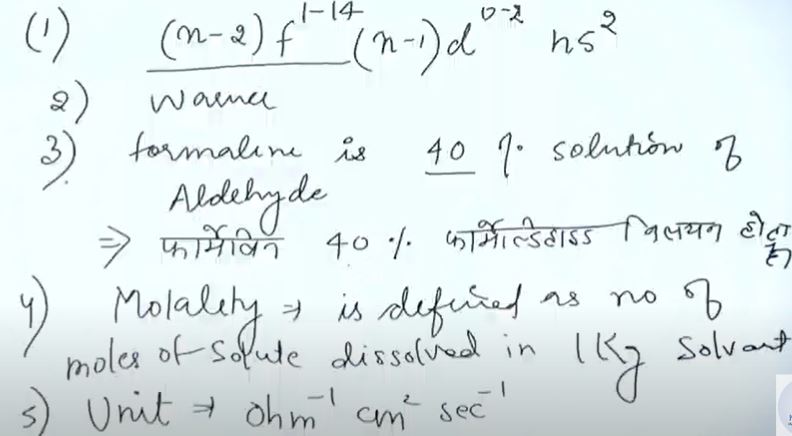 (1) (n-2) f^1-14 (n-1) d^0-2 ns^2
2) Warner
3) formaline is 40 %. solution of
Aldehyde
⇒ फार्मेलिन 40 %. फार्मेल्डिहाइड विलयन होता है।
4) Molality → is defined as no of
moles of Solute dissolved in 1 Kg Solvent
5) Unit → ohm^-1 cm^2 sec^-1